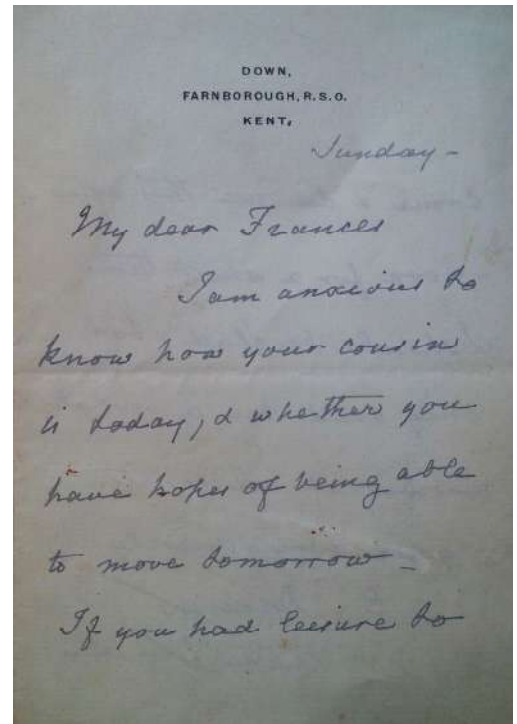 DOWN,
FARNBOROUGH, R.S.O.
KENT.
Sunday –
My dear Frances
I am anxious to
know how your cousin
is today, & whether you
have hopes of being able
to move tomorrow –
If you had leisure to